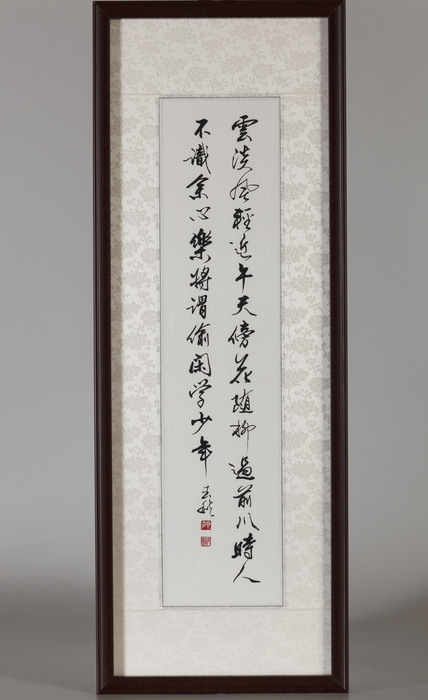 雲淡風輕近午天傍花随柳過前川時人
不識余心樂將谓偷闲学少年